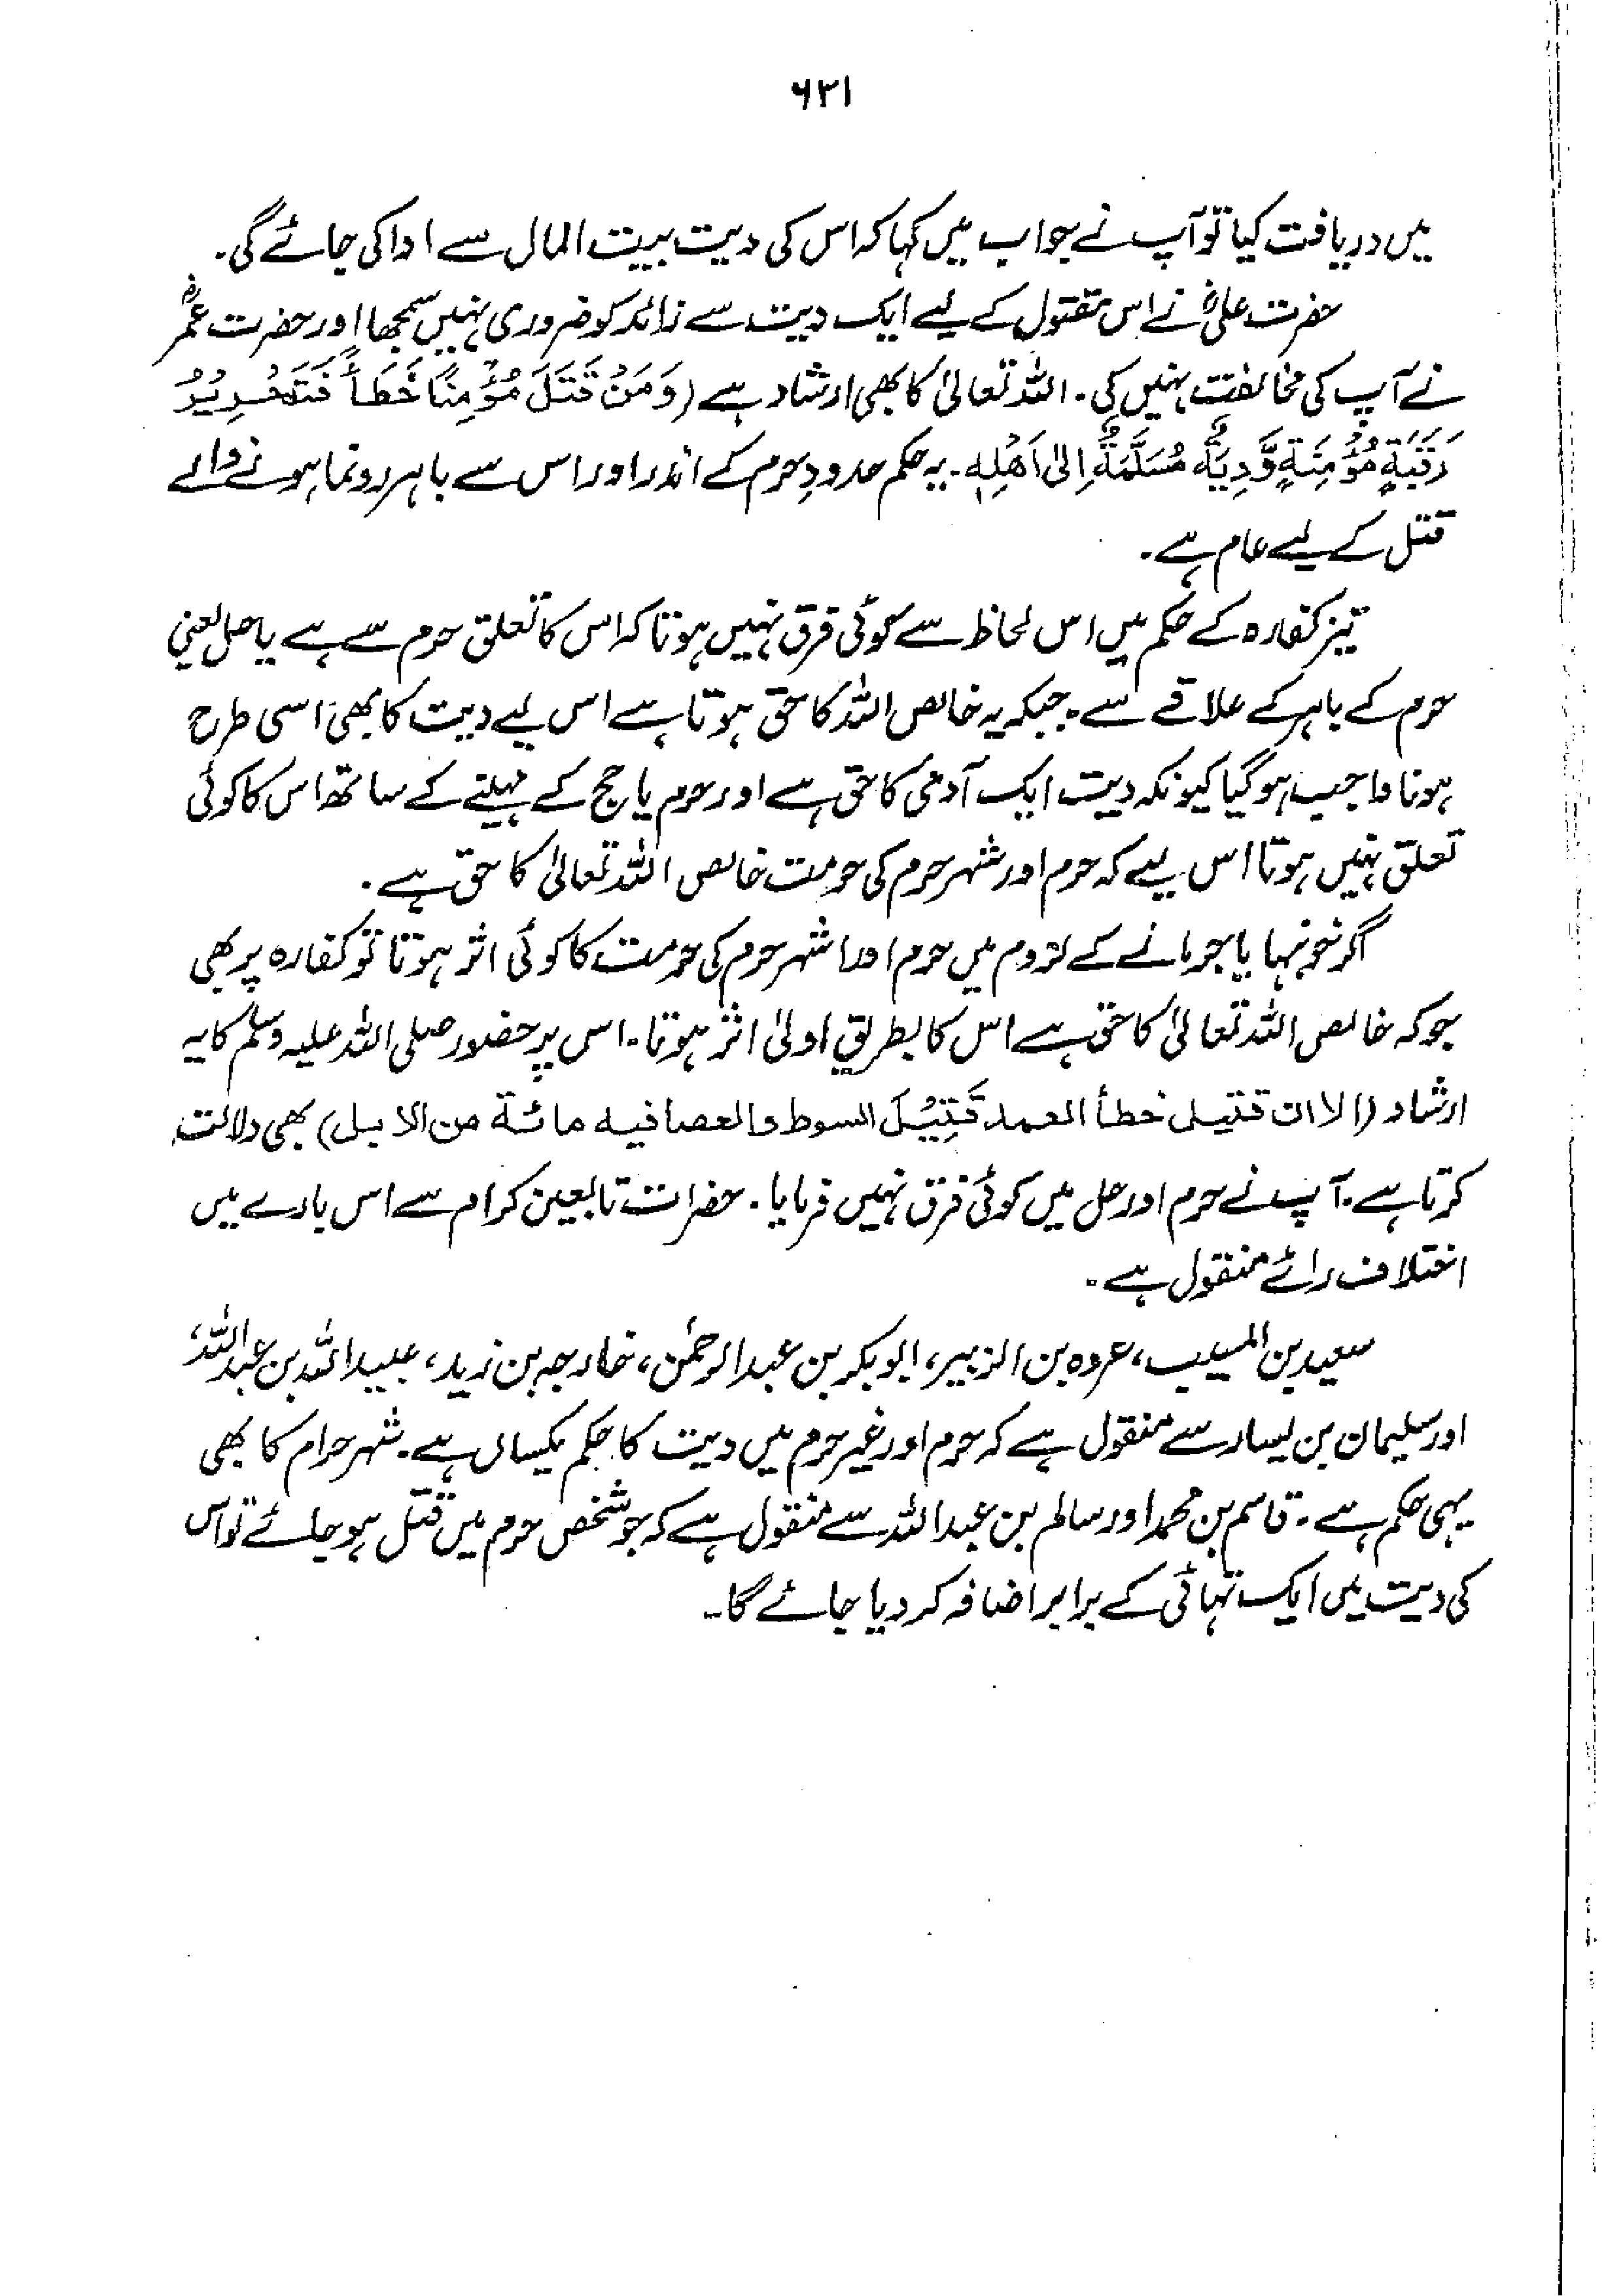 ۶۲۱
میں دریافت کیا تو آپ نے جواب میں کہا کہ اس کی دیت بیت المال سے ادا کی جائے گی۔
حضرت علیؓ نے اس مقتول کے لیے ایک دیت سے زائد کو ضروری نہیں سمجھا اور حضرت عمرؓ
نے آپ کی مخالفت نہیں کی۔ اللہ تعالیٰ کا بھی ارشاد ہے (وَمَنْ قَتَلَ مُؤْمِنًا خَطَأً فَتَحْرِيْرُ
رَقَبَةٍ مُؤْمِنَةٍ وَّدِيَةٌ مُسَلَّمَةٌ إِلىٰ اَهْلِهٖ۔ یہ حکم حدودِ حرم کے اندر اور اس سے باہر رونما ہونے والے
قتل کے لیے عام ہے۔
نیز کفارہ کے حکم میں اس لحاظ سے کوئی فرق نہیں ہوتا کہ اس کا تعلق حرم سے ہے یا حل یعنی
حرم کے باہر کے علاقے سے۔ جبکہ یہ خالص اللہ کا حق ہوتا ہے اس لیے دیت کا بھی اسی طرح
ہونا واجب ہوگیا کیونکہ دیت ایک آدمی کا حق ہے اور حرم یا حج کے مہینے کے ساتھ اس کا کوئی
تعلق نہیں ہوتا اس لیے کہ حرم اور شہر حرم کی حرمت خالص اللہ تعالیٰ کا حق ہے۔
اگر خونبہا یا جرمانے کے لزوم میں حرم اور اشہر حرم کی حرمت کا کوئی اثر ہوتا تو کفارہ پر بھی
جو کہ خالص اللہ تعالیٰ کا حق ہے اس کا بطریق اولیٰ اثر ہوتا۔ اس پر حضور صلی اللہ علیہ وسلم کا یہ
ارشاد (الا ان قتيل خطأ العمد قَتِيْلَ السوط والعصا فيه مائة من الابل) بھی دلالت
کرتا ہے۔ آپ نے حرم اور حل میں کوئی فرق نہیں فرمایا۔ حضرات تابعین کرام سے اس بارے میں
اختلاف رائے منقول ہے۔
سعید بن المسیب، عروہ بن الزبیر، ابوبکر بن عبدالرحمٰن، خارجہ بن زید، عبیداللہ بن عبداللہ،
اور سلیمان بن یسار سے منقول ہے کہ حرم اور غیر حرم میں دیت کا حکم یکساں ہے۔ شہر حرام کا بھی
یہی حکم ہے۔ قاسم بن محمد اور سالم بن عبداللہ سے منقول ہے کہ جو شخص حرم میں قتل ہوجائے تو اس
کی دیت میں ایک تہائی کے برابر اضافہ کر دیا جائے گا۔